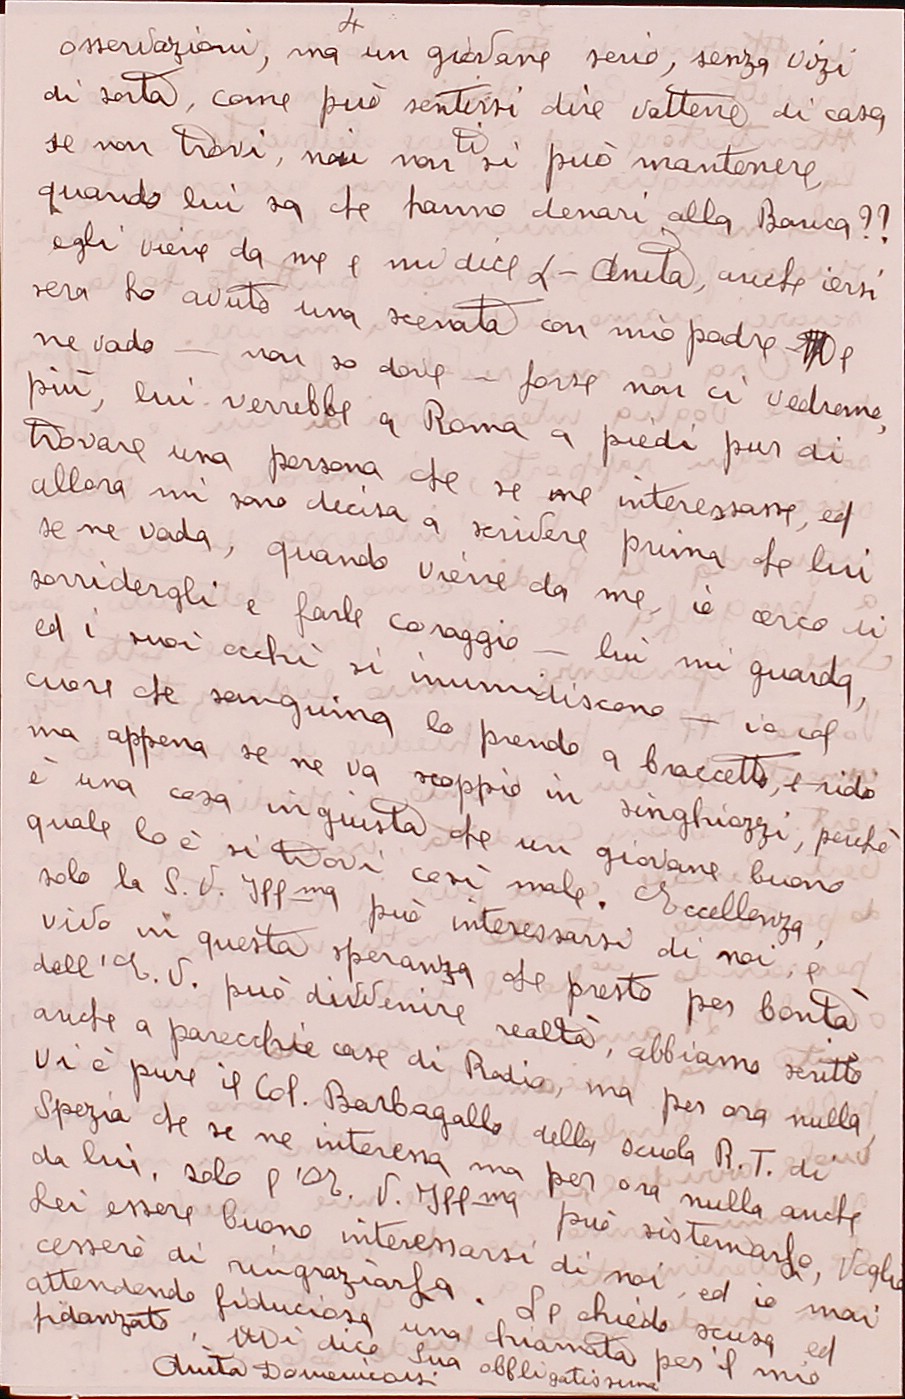 4
osservazioni, ma un giovane serio, senza vizi
di sorta, come può sentirsi dire vattene di casa
se non trovi, noi non ti si può mantenere,
quando lui sa che hanno denari alla Banca??
egli viene da me e mi dice - Anita, anche iersi
sera ho avuto una scenata con mio padre e
ne vado — non so dove — forse non ci vedremo
più, lui verrebbe a Roma a piedi pur di
trovare una persona che se ne interessasse, ed
allora mi sono decisa a scrivere prima che lui
se ne vada, quando viene da me, io cerco di
sorridergli e farle coraggio — lui mi guarda,
ed i suoi occhi si inumidiscono — io col
cuore che sanguina lo prendo a braccetto, e rido
ma appena se ne va scoppio in singhiozzi, perchè
è una cosa ingiusta che un giovane buono
quale lo è si trovi così male. Eccellenza,
solo la S. V. Ill-ma può interessarsi di noi, e
vivo in questa speranza che presto per bontà
dell'E. V. può divvenire realtà, abbiamo scritto
anche a parecchie case di Radio, ma per ora nulla,
Vi è pure il Col. Barbagallo della scuola R.T. di
Spezia che se ne interessa ma per ora nulla anche
da lui, solo l'E. V. Ill-ma può sistemarlo, Voglia
Lei essere buono interessarsi di noi, ed io mai
cesserò di ringraziarla. Le chiedo scusa ed
attendendo fiduciosa una chiamata per il mio
fidanzato, Mi dico Sua obbligatissima
Anita Domenicasi